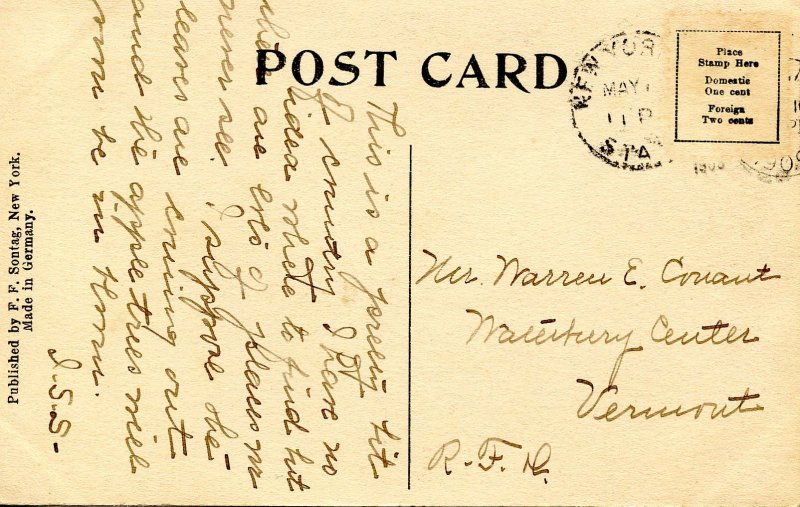 POST CARD
Place
Stamp Here
Domestic
One cent
Foreign
Two cents
NEW YORK
MAY
11 P
STA
190
Mr. Warren E. Conant
Waterbury Center
Vermont
R.F.D.
This is a pretty bit
of country I have no
idea where to find but
there are lots of places we
never see. I suppose the
leaves are coming out
and the apple trees will
soon be in bloom.
I.S.S-
Published by F. F. Sontag, New York.
Made in Germany.